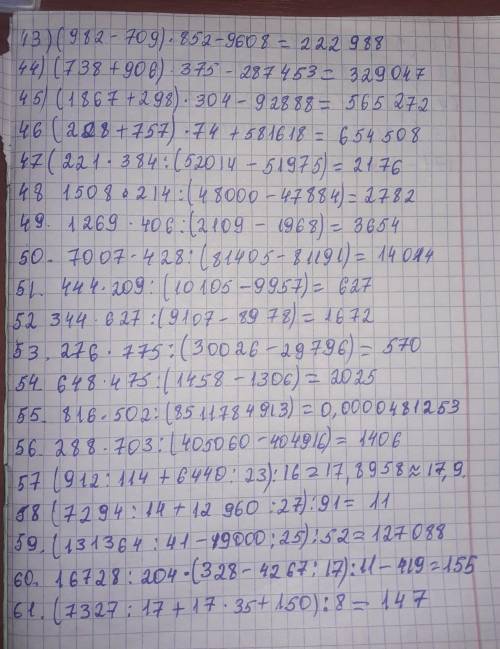 43) (982-709)·852-9608=222 988
44) (738+906)·375-287453=329047
45) (1867+298)·304-92888=565 272
46 (228+757)·74+581618=654508
47 (221·384:(52014-51975)=2176
48 1508·214:(48000-47884)=2782
49. 1269·406:(2109-1968)=3654
50. 7007·428:(81405-81191)=14014
51. 444·209:(10105-9957)=627
52 344·627:(9107-8978)=1672
53. 276·775:(30026-29796)=570
54. 648·475:(1458-1306)=2025
55. 816·502:(8511784913)=0,0000481253
56. 288·703:(405060-404916)=1406
57 (912:114+6440:23):16=17,8958≈17,9.
58 (7294:14+12 960:27):91=11
59. (131364:41-19000:25):52=127088
60. 16728:204·(328-4267:17):11-419=155
61. (7327:17+17·35+150):8=147